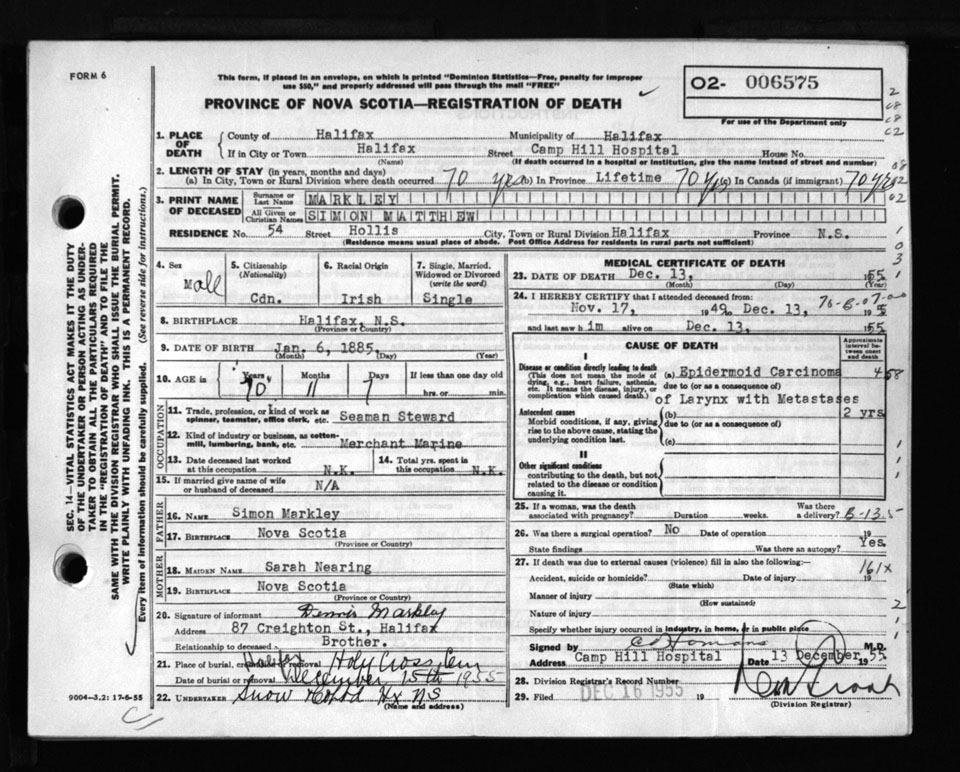 FORM 6
This form, if placed in an envelope, on which is printed "Dominion Statistics—Free, penalty for improper
use $50," and properly addressed will pass through the mail "FREE"
PROVINCE OF NOVA SCOTIA—REGISTRATION OF DEATH
02- 006575
For use of the Department only
1. PLACE OF DEATH
County of Halifax Municipality of Halifax
If in City or Town Halifax Street Camp Hill Hospital House No.
(Name) (If death occurred in a hospital or institution, give the name instead of street and number)
2. LENGTH OF STAY (in years, months and days)
(a) In City, Town or Rural Division where death occurred 70 yrs (b) In Province Lifetime 70 yrs (c) In Canada (if immigrant) 70 yrs
3. PRINT NAME OF DECEASED
Surname or Last Name MARKLEY
All Given or Christian Names SIMON MATTHEW
RESIDENCE No. 54 Street Hollis City, Town or Rural Division Halifax Province N.S.
(Residence means usual place of abode. Post Office Address for residents in rural parts not sufficient)
4. Sex Male
5. Citizenship (Nationality) Cdn.
6. Racial Origin Irish
7. Single, Married, Widowed or Divorced (write the word) Single
8. BIRTHPLACE Halifax, N.S.
(Province or Country)
9. DATE OF BIRTH Jan. 6, 1885,
(Month) (Day) (Year)
10. AGE in Years 70 Months 11 Days 7 If less than one day old
hrs. or min.
OCCUPATION
11. Trade, profession, or kind of work as spinner, teamster, office clerk, etc. Seaman Steward
12. Kind of industry or business, as cotton-mill, lumbering, bank, etc. Merchant Marine
13. Date deceased last worked at this occupation N.K.
14. Total yrs. spent in this occupation N.K.
15. If married give name of wife or husband of deceased N/A
FATHER
16. NAME Simon Markley
17. BIRTHPLACE Nova Scotia
(Province or Country)
MOTHER
18. MAIDEN NAME Sarah Nearing
19. BIRTHPLACE Nova Scotia
(Province or Country)
20. Signature of informant Dennis Markley
Address 87 Creighton St., Halifax
Relationship to deceased Brother.
21. Place of burial, cremation or removal Halifax Holy Cross Cem
Date of burial or removal December 15th 1955
22. UNDERTAKER Snow Co Ltd Hx NS
(Name and address)
9004-3.2: 17-6-55
MEDICAL CERTIFICATE OF DEATH
23. DATE OF DEATH Dec. 13, 1955
(Month) (Day) (Year)
24. I HEREBY CERTIFY that I attended deceased from:
Nov. 17, 1949 Dec. 13, 1955
76-B-07-00
and last saw h im alive on Dec. 13, 1955
CAUSE OF DEATH
Approximate interval between onset and death
I
Disease or condition directly leading to death
(This does not mean the mode of dying, e.g., heart failure, asthenia, etc. It means the disease, injury, or complication which caused death.)
(a) Epidermoid Carcinoma 458
due to (or as a consequence of)
of Larynx with Metastases
Antecedent causes
Morbid conditions, if any, giving rise to the above cause, stating the underlying condition last.
(b) 2 yrs.
due to (or as a consequence of)
(c)
II
Other significant conditions
contributing to the death, but not related to the disease or condition causing it.
25. If a woman, was the death associated with pregnancy? Duration weeks. Was there a delivery? B-13.5
26. Was there a surgical operation? No Date of operation 19
State findings Was there an autopsy? Yes.
27. If death was due to external causes (violence) fill in also the following:—
161X
Accident, suicide or homicide? Date of injury 19
(State which)
Manner of injury
(How sustained)
Nature of injury
Specify whether injury occurred in industry, in home, or in public place
Signed by M.D.
Address Camp Hill Hospital Date 13 December 1955
28. Division Registrar's Record Number
29. Filed DEC 16 1955 19
(Division Registrar)
SEC. 14—VITAL STATISTICS ACT MAKES IT THE DUTY
OF THE UNDERTAKER OR PERSON ACTING AS UNDER-
TAKER TO OBTAIN ALL THE PARTICULARS REQUIRED
IN THE "REGISTRATION OF DEATH" AND TO FILE THE
SAME WITH THE DIVISION REGISTRAR WHO SHALL ISSUE THE BURIAL PERMIT.
WRITE PLAINLY WITH UNFADING INK. THIS IS A PERMANENT RECORD.
Every item of information should be carefully supplied. (See reverse side for instructions.)